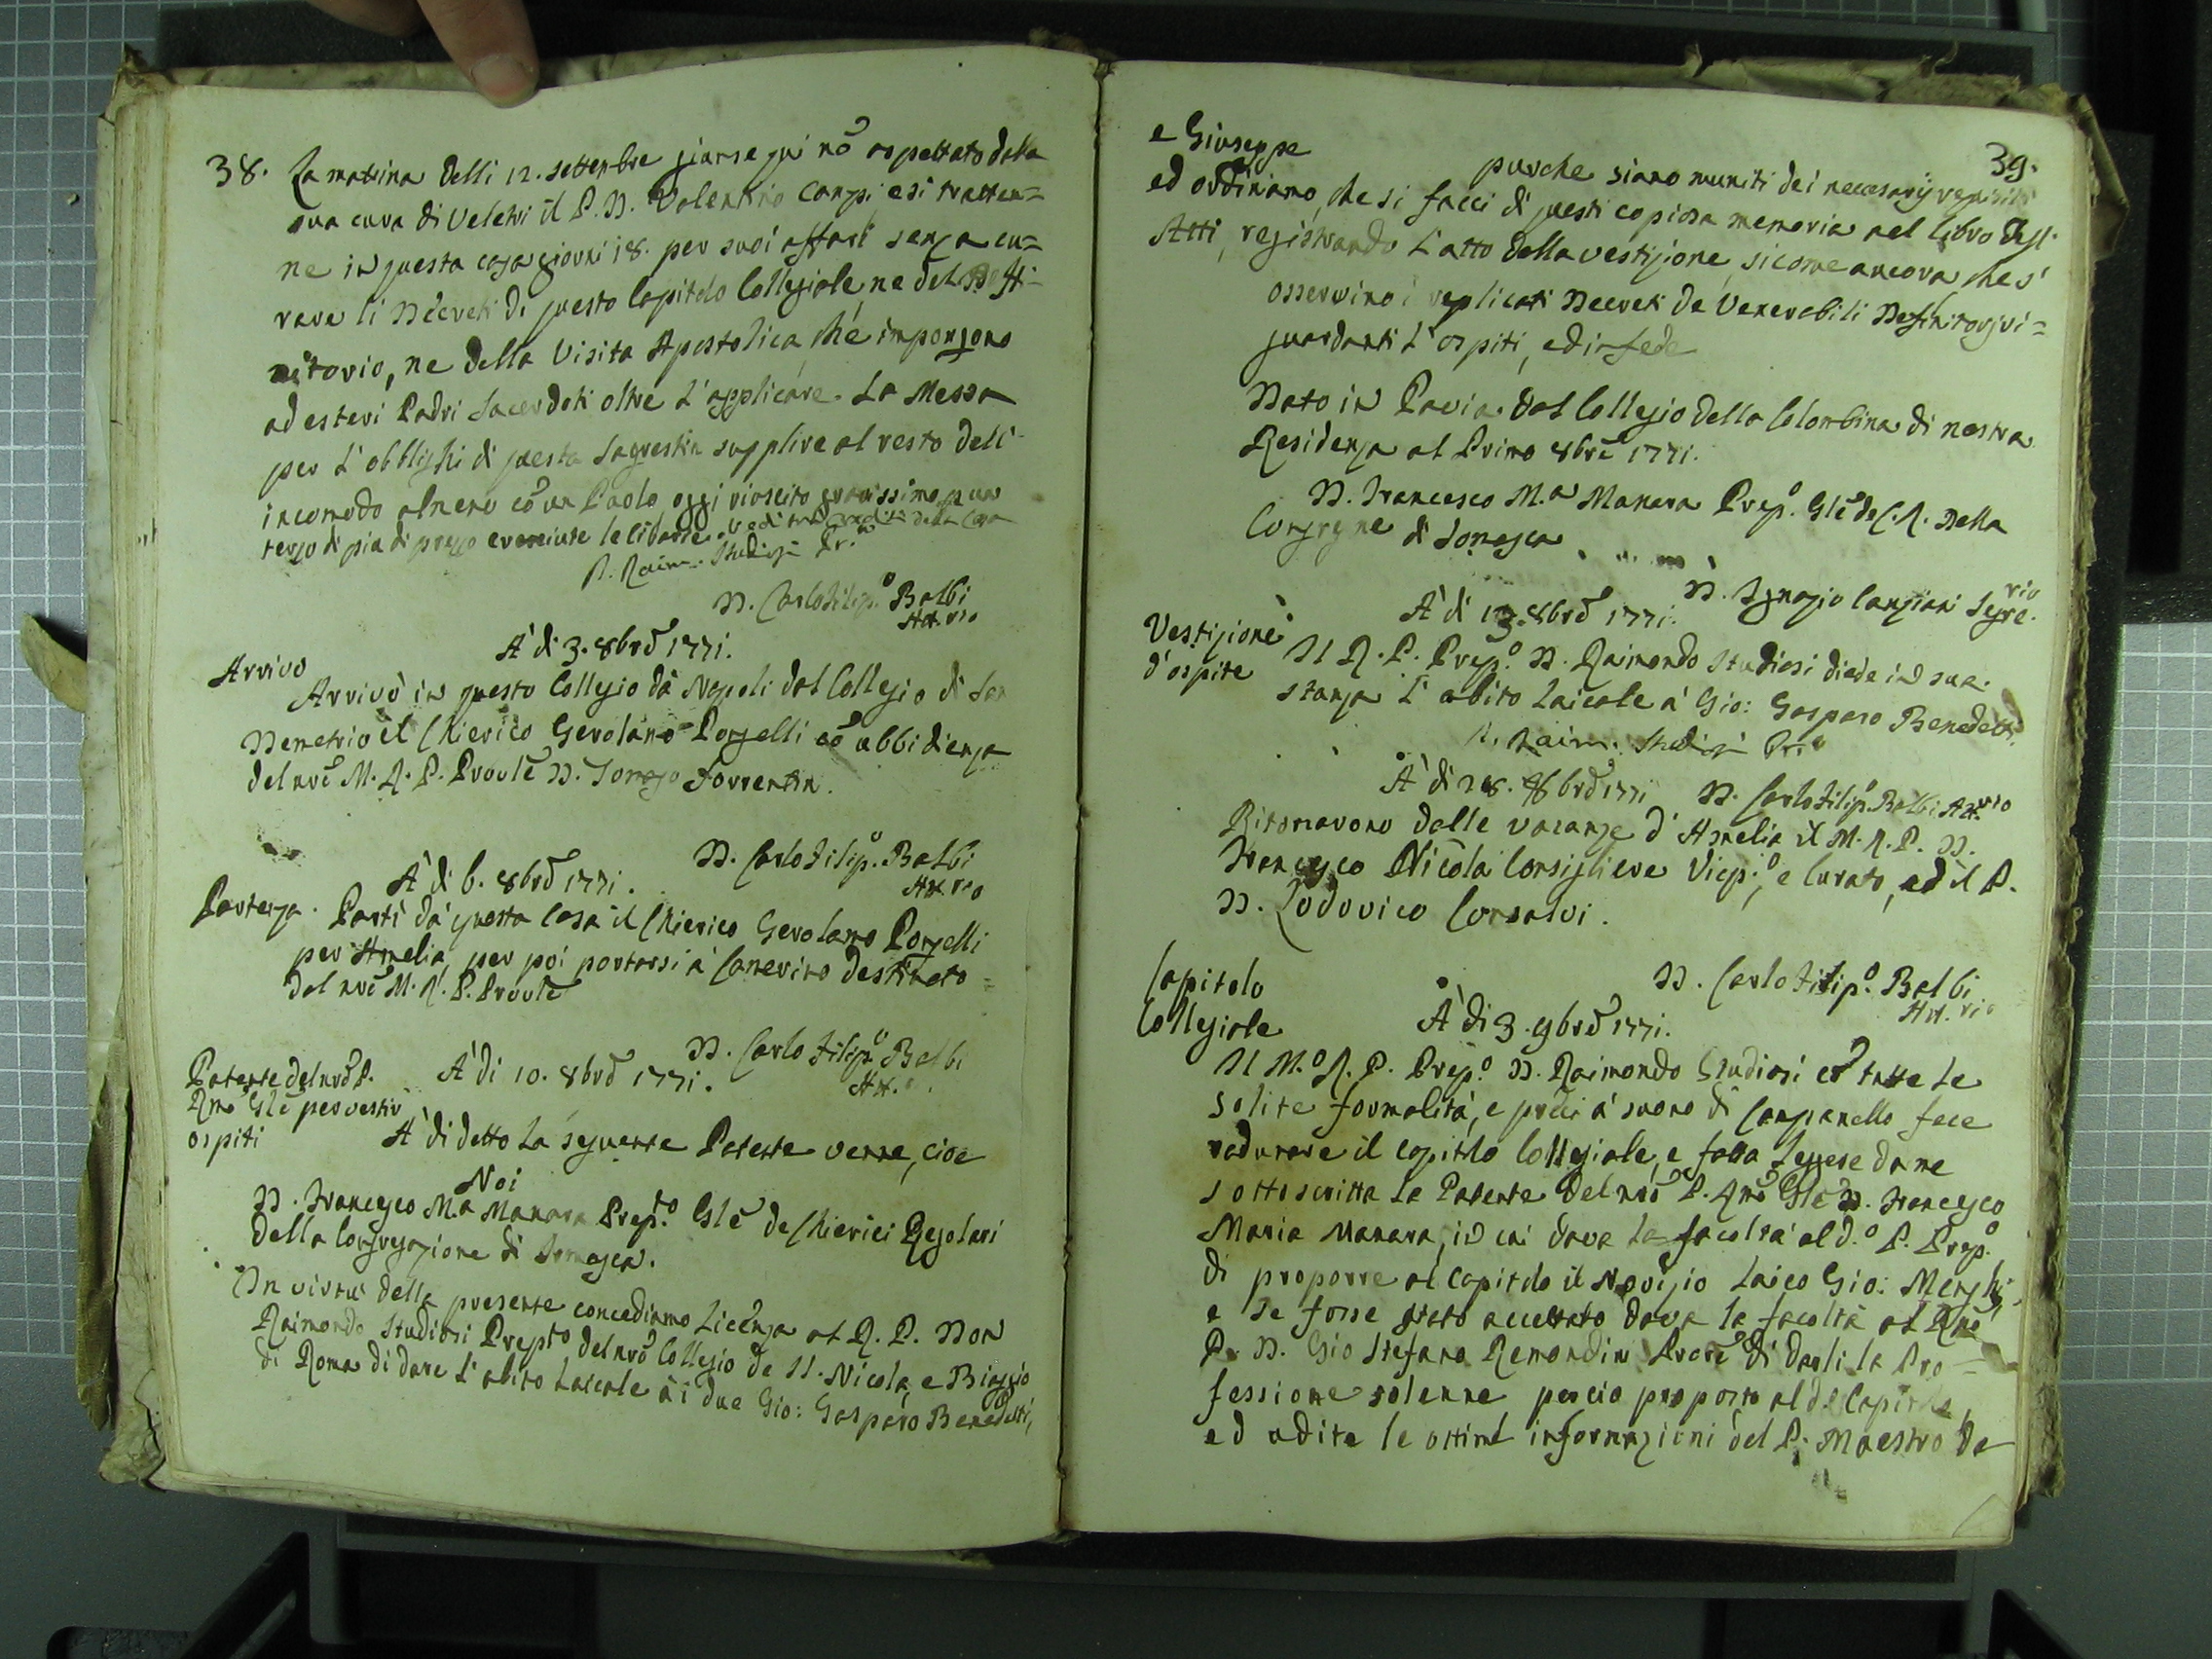 38. La mattina delli 12. settembre giunse qui nõ aspettato dalla
sua cura di Veletri il P. D. Valentino Campi e si tratten=
ne in questa casa giorni 18. per suoi affari senza cu=
rare li Decreti di questo Capitolo Collegiale, ne del Deffi-
nitorio, ne della Visita Apostolica che impongono
ad esteri Padri Sacerdoti oltre l'applicare la Messa
per l'obblighi di questa Sagrestia supplire al resto dell'
incomodo almeno cõ un Paolo oggi riuscito gravissimo p un
terzo di piu di prezzo cresciute le cibarie
R. Raim. Studiosi Pr.to
D. Carlo Filip.o Balbi
Att.rio
A' di 3. 8brẽ 1771.
Arrivo
Arrivò in questo Collegio da Napoli dal Collegio di San
Demetrio il Chierico Gerolamo Porzelli cõ ubbidienza
del nrõ M. R. P. Provlẽ D. Tomaso Sorrentin.
D. Carlo Filip.o Balbi
Att.rio
A' di 6. 8brẽ 1771.
Partenza. Parti da questa Casa il Chierico Gerolamo Porzelli
per Amelia, per poi portarsi a' Camerino destinato
dal nrõ M. R. P. Provlẽ
D. Carlo Filip.o Balbi
Att.o
Patente del nrõ P.
Rmõ Glẽ per vestir
ospiti
A' di 10. 8brẽ 1771.
A' di detto la seguente Patente venne, cioe
Noi
D. Francesco M.a Manara Prep.to Glẽ de Chierici Regolari
della Congregazione di Somasca.
In virtù della presente concediamo licenza al R. P. Don
Raimondo Studiosi Prepto del nrõ Collegio de SS. Nicola, e Biaggio
di Roma di dare l'abito Laicale ai due Gio: Gasparo Benedetti,
39.
e Giuseppe purche siano muniti dei necessarij requisiti
ed ordiniamo, che si facci di questi copiosa memoria nel libro degl'
Atti, registrando l'atto della vestizione, sicome ancora che s'
osservino i replicati Decreti de Venerabili Definitorj ri=
guardanti l'ospiti, ed in fede
Dato in Pavia dal Collegio della Colombina di nostra
Residenza al Primo 8brẽ 1771.
D. Francesco M.a Manara Prep.o Glẽ de C. R. della
Congrgne di Somasca
D. Ignazio Canziani Segre.rio
Vestizione
d'ospite
A' di 13. 8brẽ 1771.
Il R. P. Prep.o D. Raimondo Studiosi diede in sua
stanza l'abito Laicale a' Gio: Gasparo Benedetti.
R. Raim. Studiosi Pr.to
D. Carlo Filip.o Balbi Att.rio
A' di 28. 8brẽ 1771
Ritornarono dalle vacanze d'Amelia il M. R. P. D.
Francesco Nicola Consigliere Vicep.o, e Curato, ed il P.
D. Lodovico Consalvi.
D. Carlo Filip.o Balbi
Att.rio
Capitolo
Collegiale
A' di 3. 9brẽ 1771.
Il M.o R. P. Prep.o D. Raimondo Studiosi cõ tutte le
solite formalità, e preci a' suono di Campanello fece
radunare il Capitolo Collegiale, e fatta leggere da me
sottoscritta la Patente del nrõ P. Rmõ Glẽ D. Francesco
Maria Manara, in cui dava la facoltà al d.o P. Prep.o
di proporre al Capitolo il Novizio Laico Gio: Menghi,
e se fosse stato accettato dava la facoltà al Rmõ
P. D. Gio Stefano Remondini di dargli la Pro-
fessione solenne perciò proposto al d.o Capitolo,
ed udite le ottime informazioni del P. Maestro de